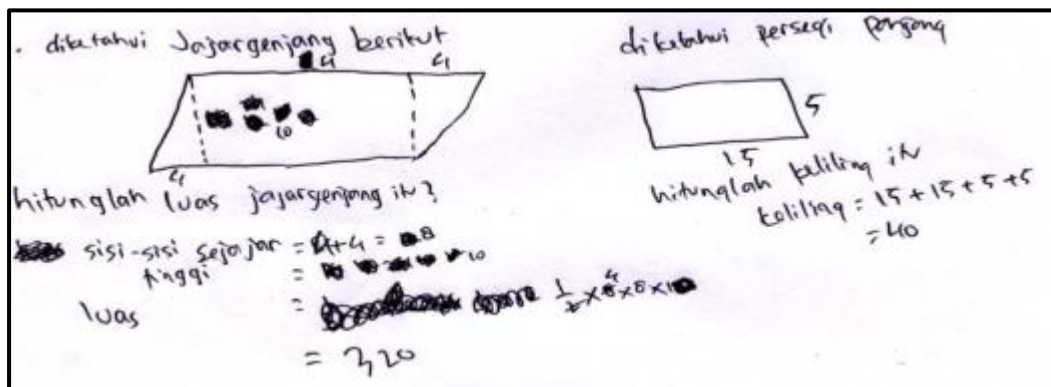 . diketahui Jajargenjang berikut
4 4
10
4
hitunglah luas jajargenjang itu?
sisi-sisi sejajar = 4+4 = 8
tinggi = 10
luas = 1/2 x 8 x 8 x 10
4
= 320
diketahui persegi panjang
5
15
hitunglah keliling itu
keliling = 15 + 15 + 5 + 5
= 40